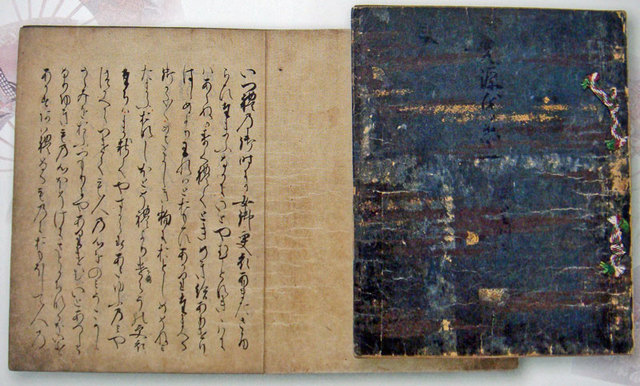 いつれの御時にか女御更衣あまたさふ
らひたまひけるなかにいとやむことなききはに
はあらぬかすくれてときめき給ありけり
はしめより我はと思あかりたまへる
御方々めさましき物におとしめそねみ
たまふおなしほとそれより下らうの更衣
たちはましてやすからすあさゆふの宮
つかへにつけても人の心をのみうこかし
うらみをおふつもりにやありけむいとあつしく
なりゆきもの心ほそけにさとかちなるをいよ
あかすあはれなるものにおもほして人の